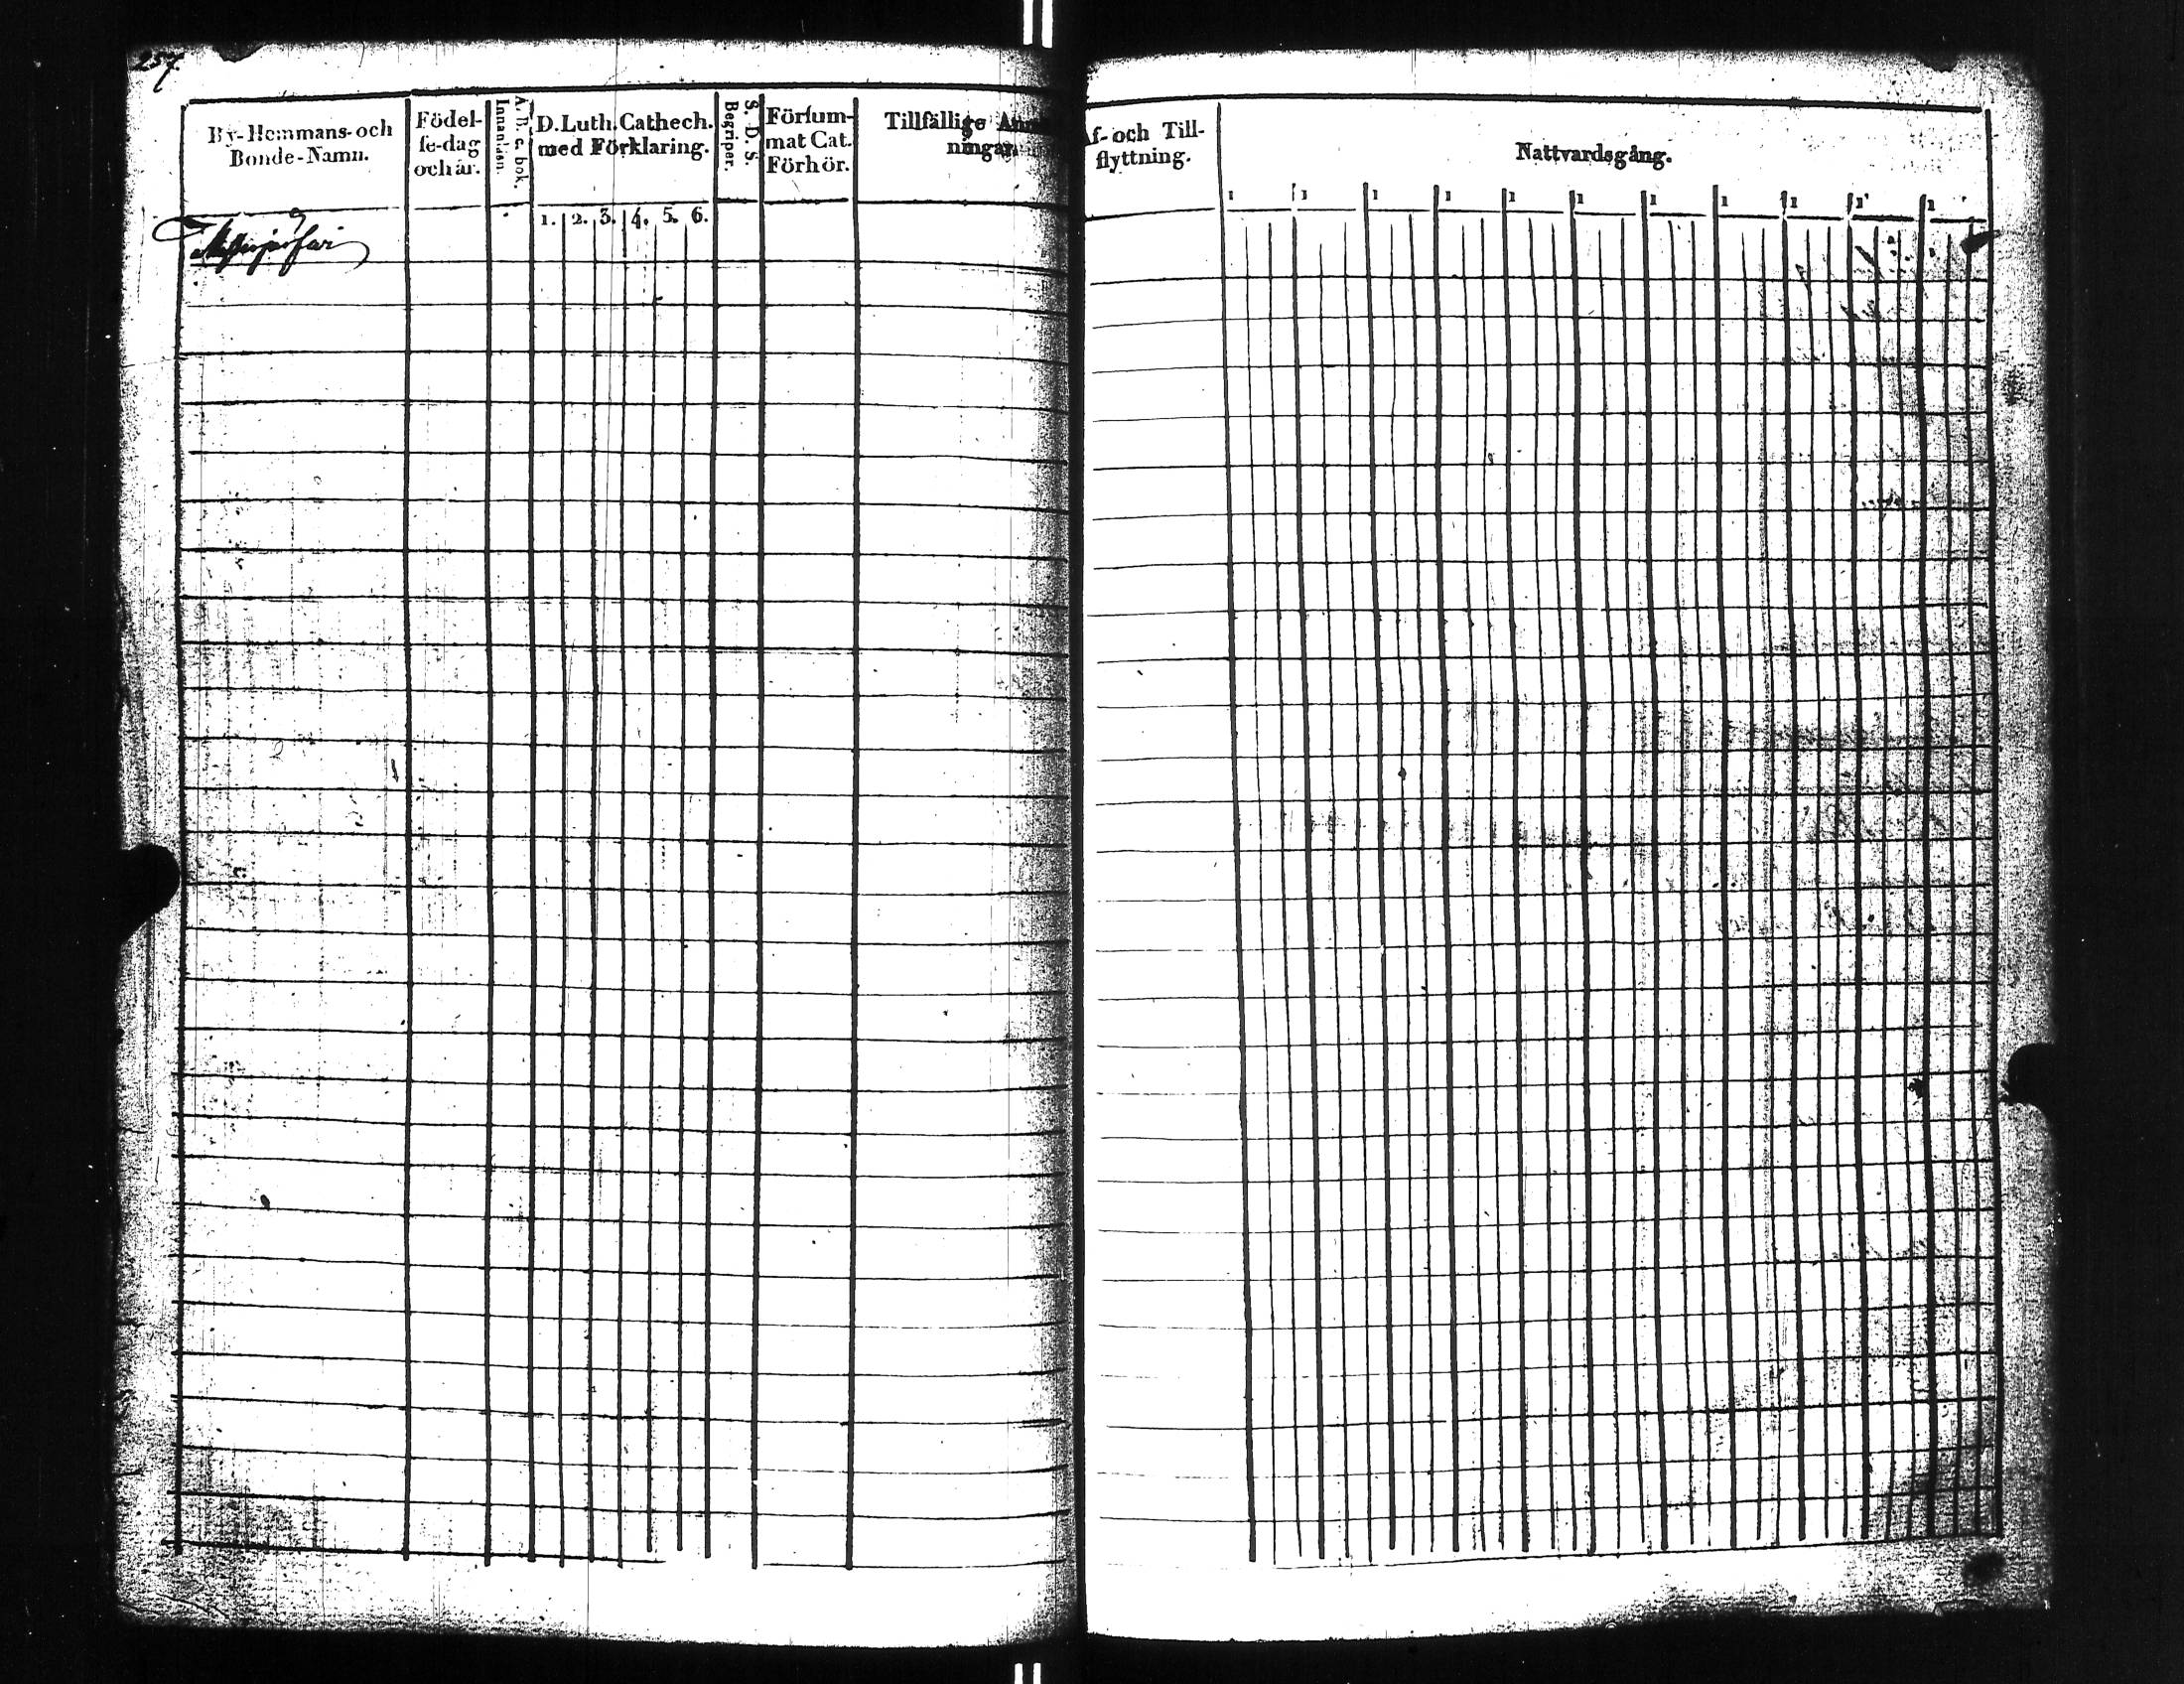 257
By-Hemmans- och
Bonde-Namn.
Födel-
ſe-dag
och år.
A. B. c. bok.
Innanläsn.
D. Luth. Cathech.
med Förklaring.
1. 2. 3. 4. 5. 6.
S. D. S.
Begriper.
Förſum-
mat Cat.
Förhör.
Tillfällige An
ningar.
Af- och Till-
flyttning.
Nattvardsgång.
1 1 1 1 1 1 1 1 1 1 1